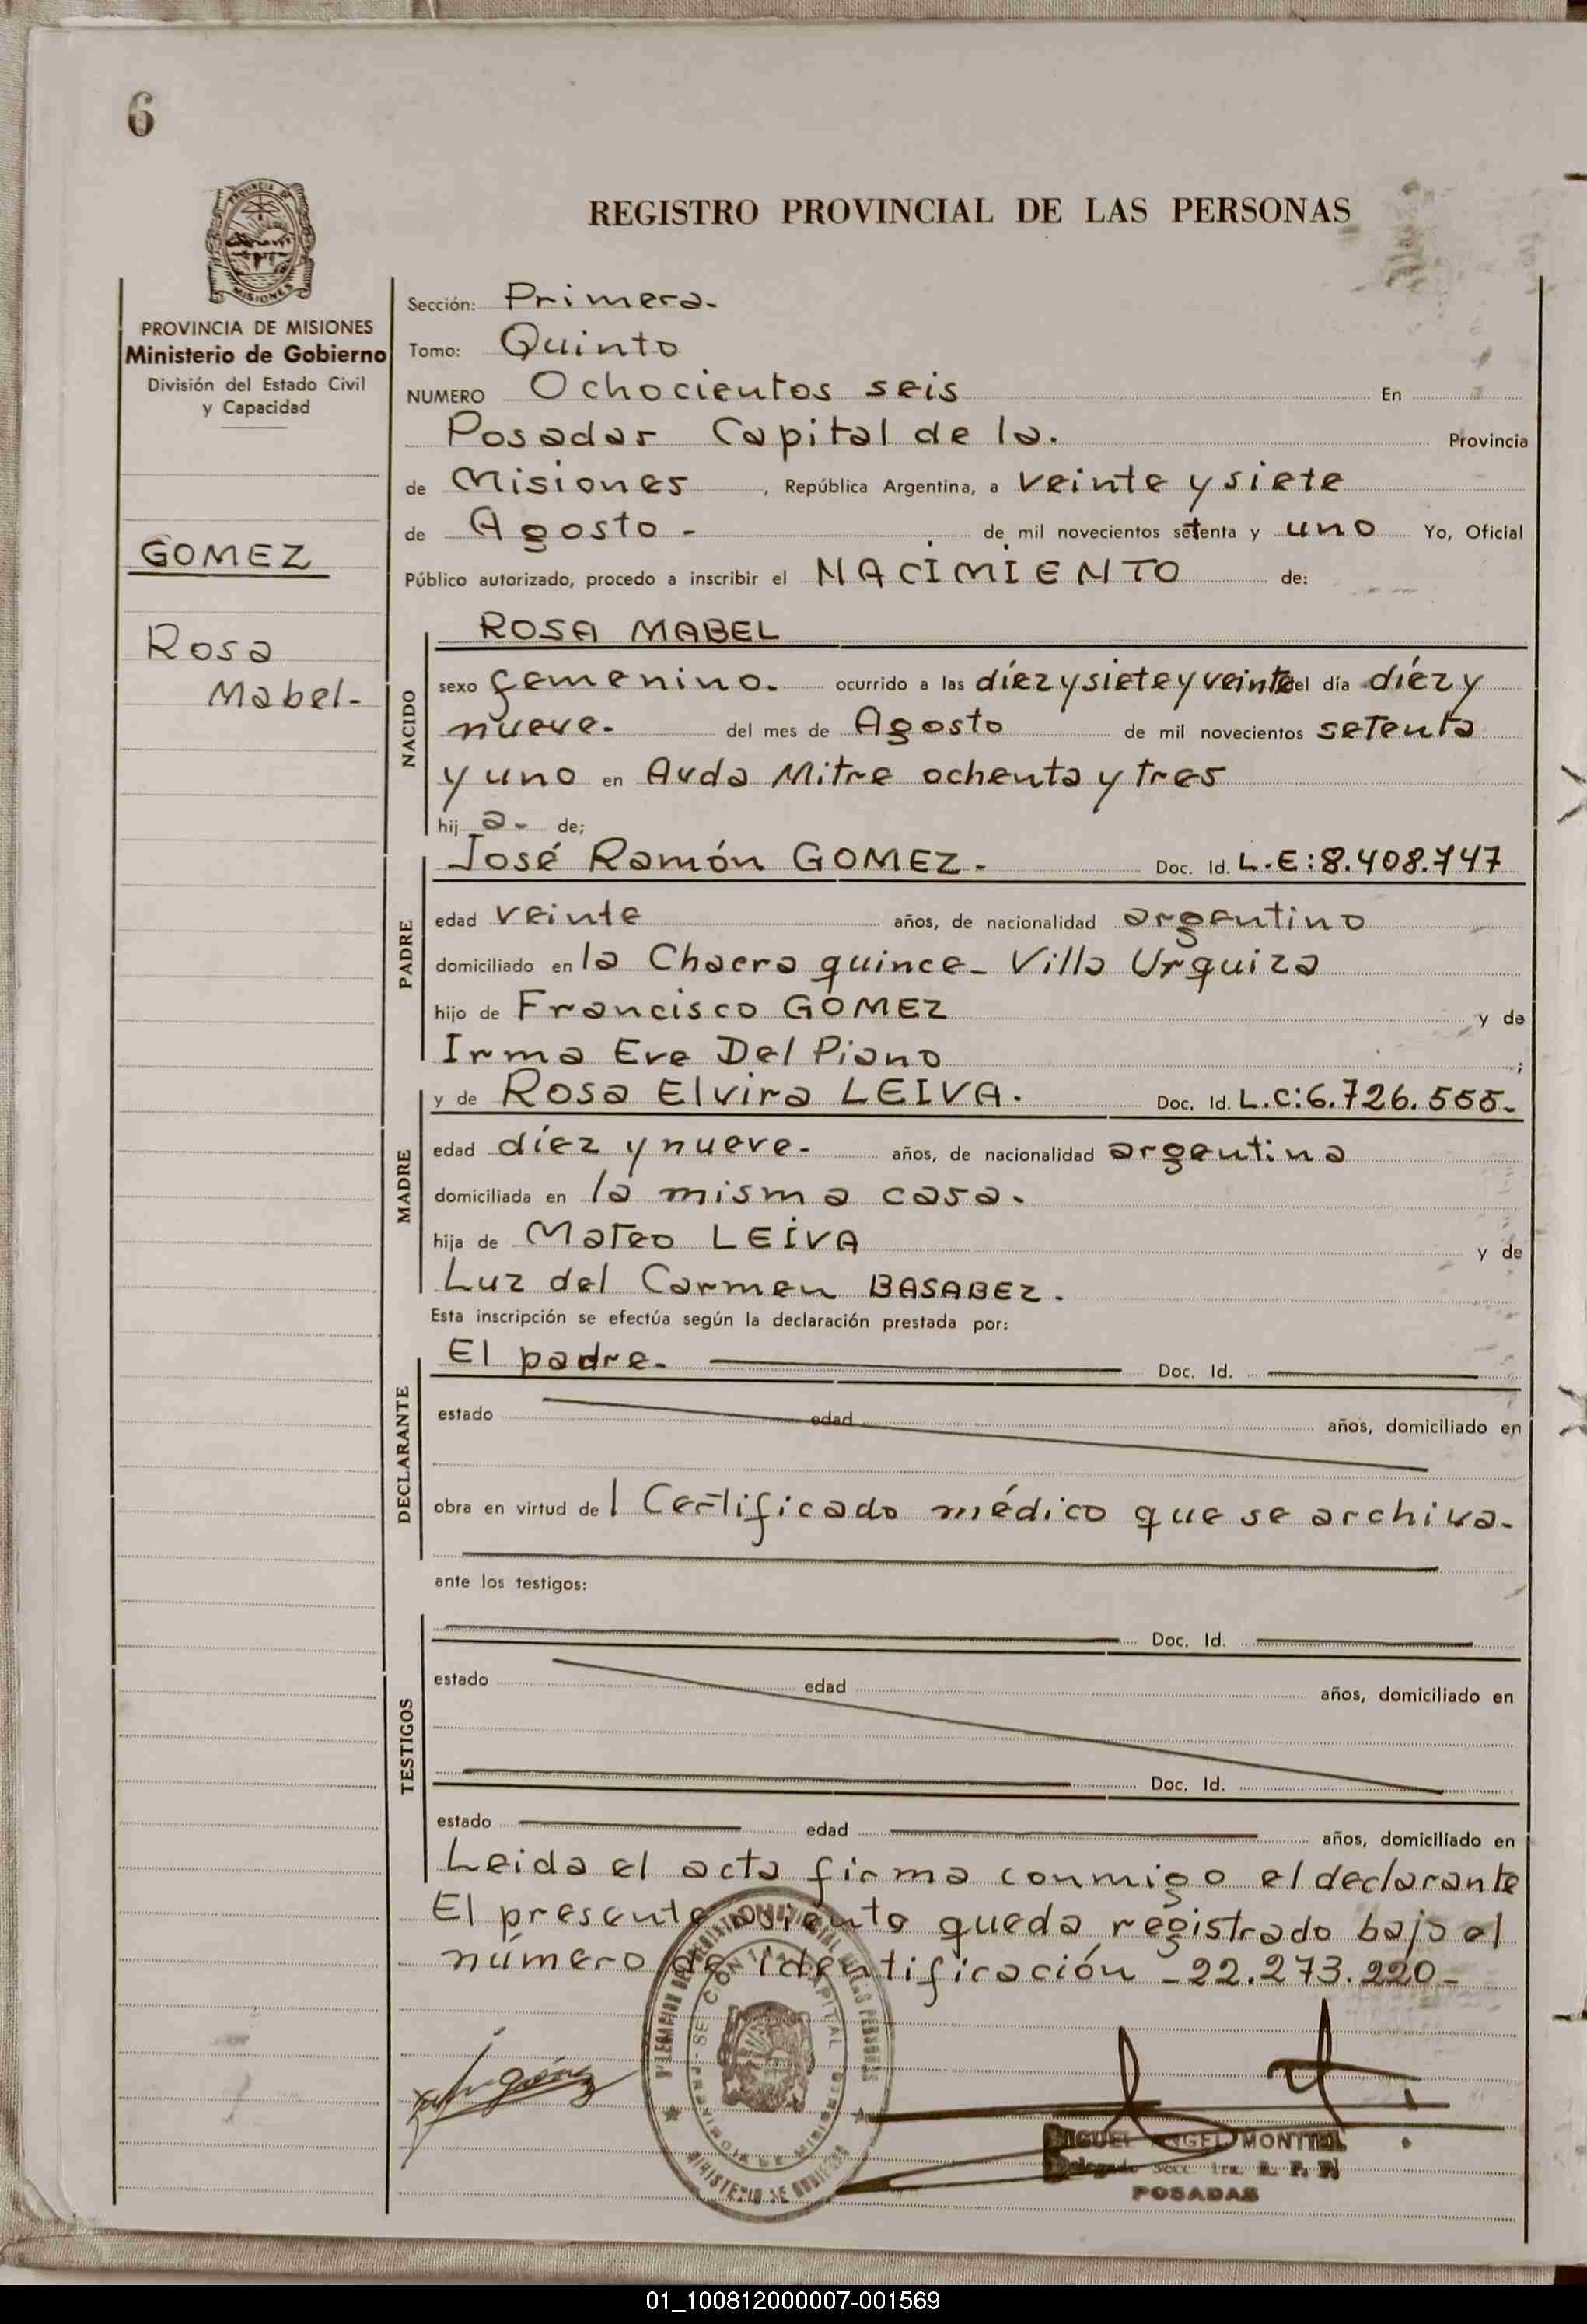 6
PROVINCIA DE
MISIONES
REGISTRO PROVINCIAL DE LAS PERSONAS
PROVINCIA DE MISIONES
Ministerio de Gobierno
División del Estado Civil
y Capacidad
GOMEZ
Rosa
Mabel-
Sección: Primera.
Tomo: Quinto
NUMERO Ochocientos seis En
Posadas Capital de la. Provincia
de Misiones, República Argentina, a veinte y siete
de Agosto - de mil novecientos setenta y uno Yo, Oficial
Público autorizado, procedo a inscribir el NACIMIENTO de:
NACIDO
ROSA MABEL
sexo femenino. ocurrido a las díez y siete y veinte del día díez y
nueve. del mes de Agosto de mil novecientos setenta
y uno en Avda Mitre ochenta y tres
hij a- de;
PADRE
José Ramón GOMEZ. Doc. Id. L.E:8.408.747
edad veinte años, de nacionalidad argentino
domiciliado en la Chacra quince- Villa Urquiza
hijo de Francisco GOMEZ y de
Irma Eve Del Piano ;
MADRE
y de Rosa Elvira LEIVA. Doc. Id. L.C:6.726.555-
edad díez y nueve- años, de nacionalidad argentina
domiciliada en la misma casa.
hija de Mateo LEIVA y de
Luz del Carmen BASABEZ.
Esta inscripción se efectúa según la declaración prestada por:
DECLARANTE
El padre. Doc. Id.
estado edad años, domiciliado en
obra en virtud de l Certificado médico que se archiva.
ante los testigos:
TESTIGOS
Doc. Id.
estado edad años, domiciliado en
Doc. Id.
estado edad años, domiciliado en
Leida el acta firma conmigo el declarante
El presente asiento queda registrado bajo el
número de identificación -22.273.220-
MIGUEL ANGEL MONTIEL
Delegado Secc. 1ra. R. P. P.
POSADAS
01_100812000007-001569